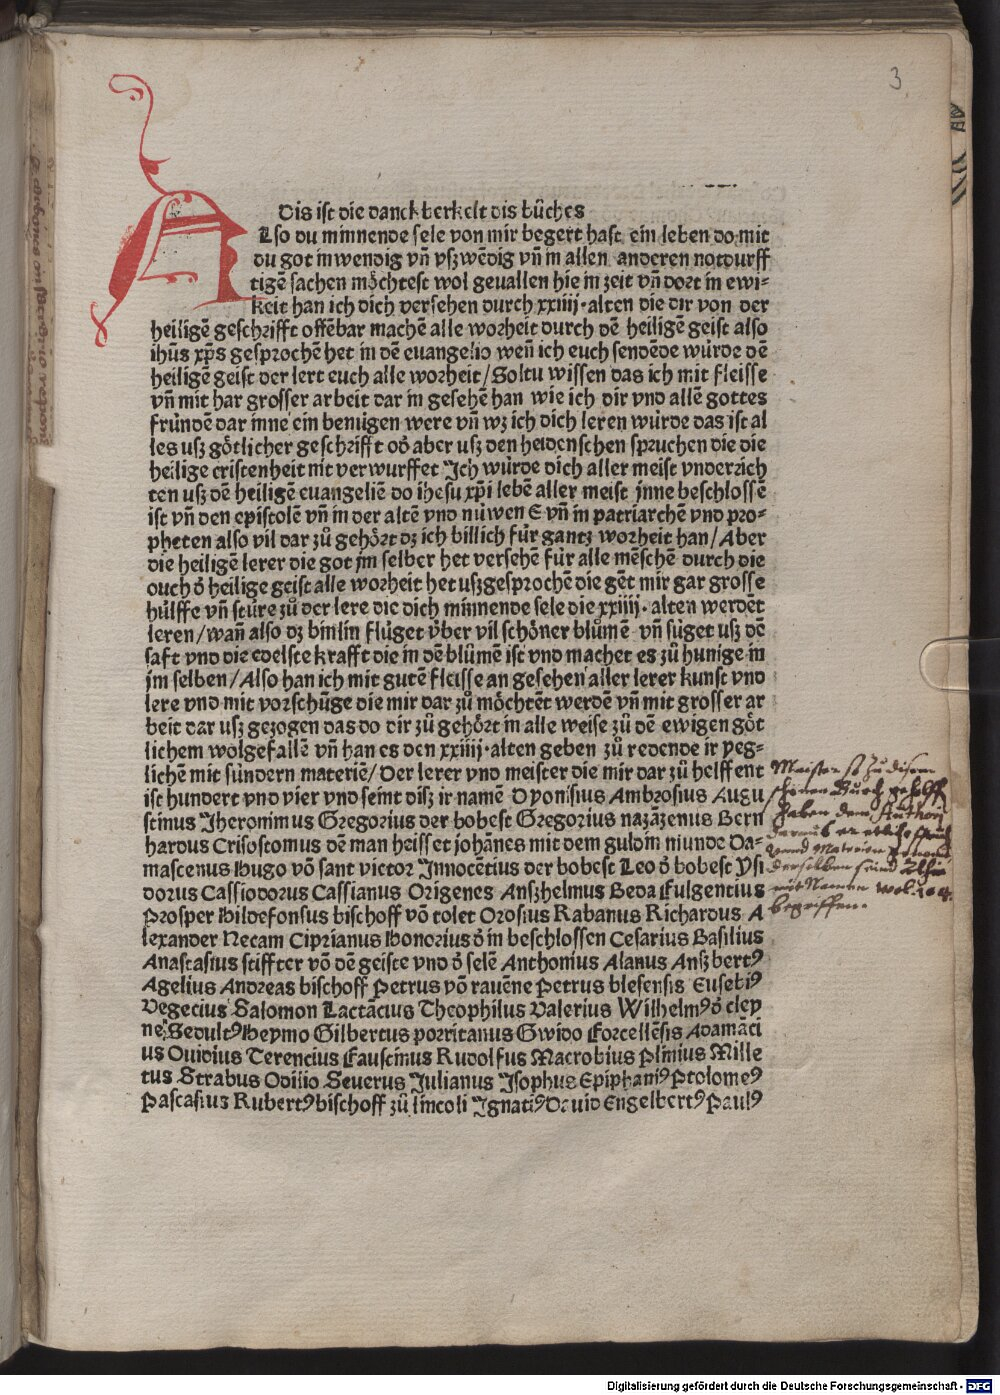 3
Dis ist die danckberkeit dis bůches
Also du minnende sele von mir begert hast ein leben do mit
du got inwendig vñ vszwēdig vñ in allen anderen notdurff
tigē sachen mőchtest wol geuallen hie in zeit vñ dort in ewi⸗
keit han ich dich versehen durch xxiiij·alten die dir von der
heiligē geschrifft offēbar machē alle worheit durch dē heiligē geist also
ihūs xp̄s gesprochē het in dē euangelio weñ ich euch sendēde würde dē
heiligē geist der lert euch alle worheit/Soltu wissen das ich mit fleisse
vñ mit har grosser arbeit dar in gesehē han wie ich dir vnd allē gottes
fründē dar inne ein benügen were vñ wz ich dich leren würde das ist al
les usz gőtlicher geschrifft od̄ aber usz den heidenschen spruchen die die
heilige cristenheit nit verwurffet Ich würde dich aller meist vnderrich
ten usz dē heiligē euangeliē do ihesu xp̄i lebē aller meist jnne beschlossē
ist vñ den epistolē vñ in der altē vnd nüwen E vñ in patriarchē vnd pro⸗
pheten also vil dar zů gehőrt dz ich billich für gantz worheit han/Aber
die heiligē lerer die got jm selber het versehē für alle mēschē durch die
ouch d̄ heilige geist alle worheit het uszgesprochē die gēt mir gar grosse
hülffe vñ stüre zů der lere die dich minnende sele die xxiiij·alten werdēt
leren/wañ also dz binlin flüget v̈ber vil schőner blůmē vñ süget usz dē
saft vnd die edelste krafft die in dē blůmē ist vnd machet es zů hunige in
jm selben/Also han ich mit gutē fleisse an gesehen aller lerer kunst vnd
lere vnd mit vorschūge die mir dar zů mőchtēt werdē vñ mit grosser ar
beit dar usz gezogen das do dir zů gehőrt in alle weise zů dē ewigen gőt
lichem wolgefallē vñ han es den xxiiij·alten geben zů redende ir yeg⸗
lichē mit sündern materiē/Der lerer vnd meister die mir dar zů helffent
ist hundert vnd vier vnd seint disz ir namē Dyonisius Ambrosius Augu
stinus Jheronimus Gregorius der bobest Gregorius nazāzenus Bern
hardus Crisostomus dē man heisset johānes mit dem guldin munde Da⸗
mascenus Hugo vō sant victor Innocētius der bobest Leo d̄ bobest Ysi
dorus Cassiodorus Cassianus Origenes Anszhelmus Beda Fulgentius
Prosper Hildefonsus bischoff vō tolet Orosius Rabanus Richardus A
lexander Necam Ciprianus Honorius d̄ in beschlossen Cesarius Basilius
Anastasius stiffter vō dē geiste vnd d̄ selē Anthonius Alanus Anszbertꝰ
Agelius Andreas bischoff Petrus vō rauēne Petrus blesensis Eusebiꝰ
Vegecius Salomon Lactācius Theophilus Valerius Wilhelmꝰ d̄ cley
ne Sedultꝰ Heymo Gilbertus porritanus Gwido Forcellēsis Adamāci
us Ouidius Terencius Faustinus Rudolfus Macrobius Plinius Mille
tus Strabus Odilio Seuerus Julianus Isophus Epiphaniꝰ Ptolomeꝰ
Pascasius Rubertꝰ bischoff zů lincoli Ignatiꝰ Dauid Engelbertꝰ Paulꝰ
Meister so zu disem
schönen Buech geholff
haben dem Authori
begriffen.
Digitalisierung gefördert durch die Deutsche Forschungsgemeinschaft - DFG